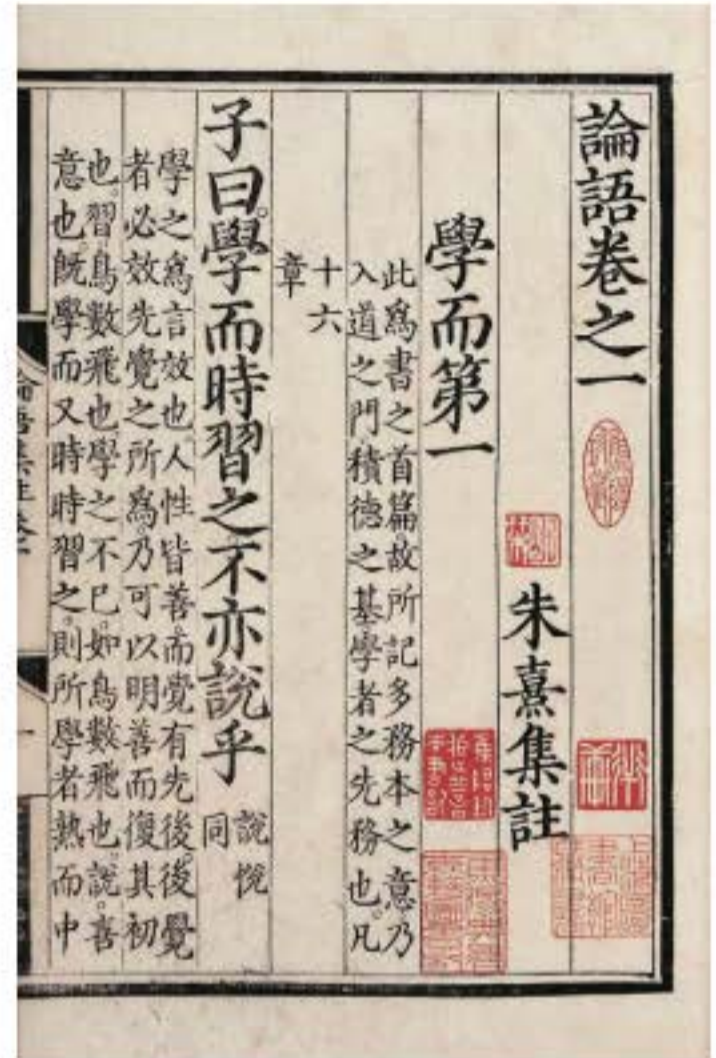 論語卷之一
朱熹集註
學而第一
此爲書之首篇。故所記多務本之意。乃
入道之門。積德之基。學者之先務也。凡
十六
章
子曰。學而時習之。不亦說乎
說悅
同
學之爲言效也。人性皆善。而覺有先後。後覺
者必效先覺之所爲。乃可以明善而復其初
也。習。鳥數飛也。學之不已。如鳥數飛也。說。喜
意也。旣學而又時時習之。則所學者熟。而中